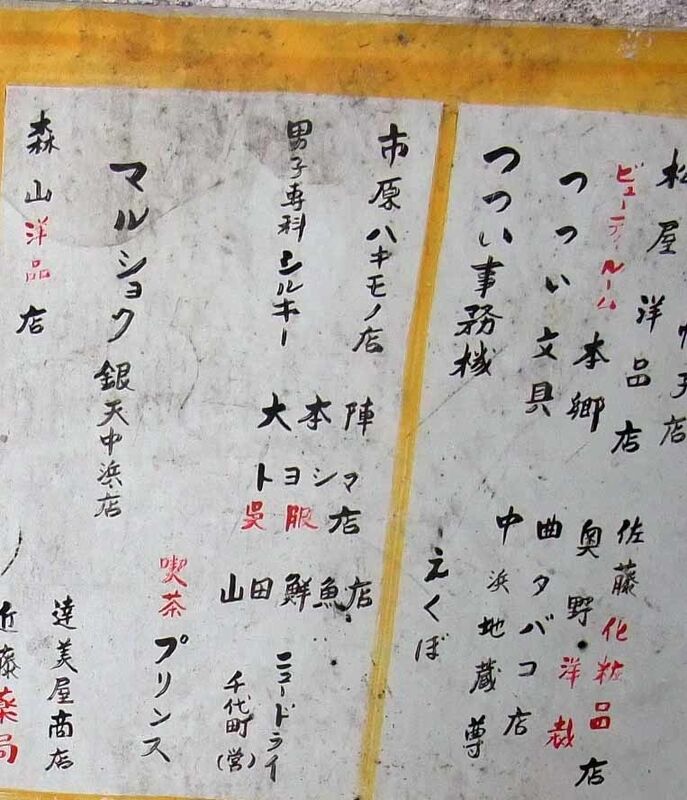 松屋洋品店
ビューティルーム本郷
つつい文具
つつい事務械
佐藤化粧品店
奥野・洋裁
曲タバコ店
中浜地蔵尊
えくぼ
市原ハキモノ店
男子専科シルキー
大本陣
トヨシマ
呉服店
山田鮮魚店
ニュードライ
千代町(営)
マルショク銀天中浜店
喫茶プリンス
森山洋品店
達美屋商店
近藤薬局